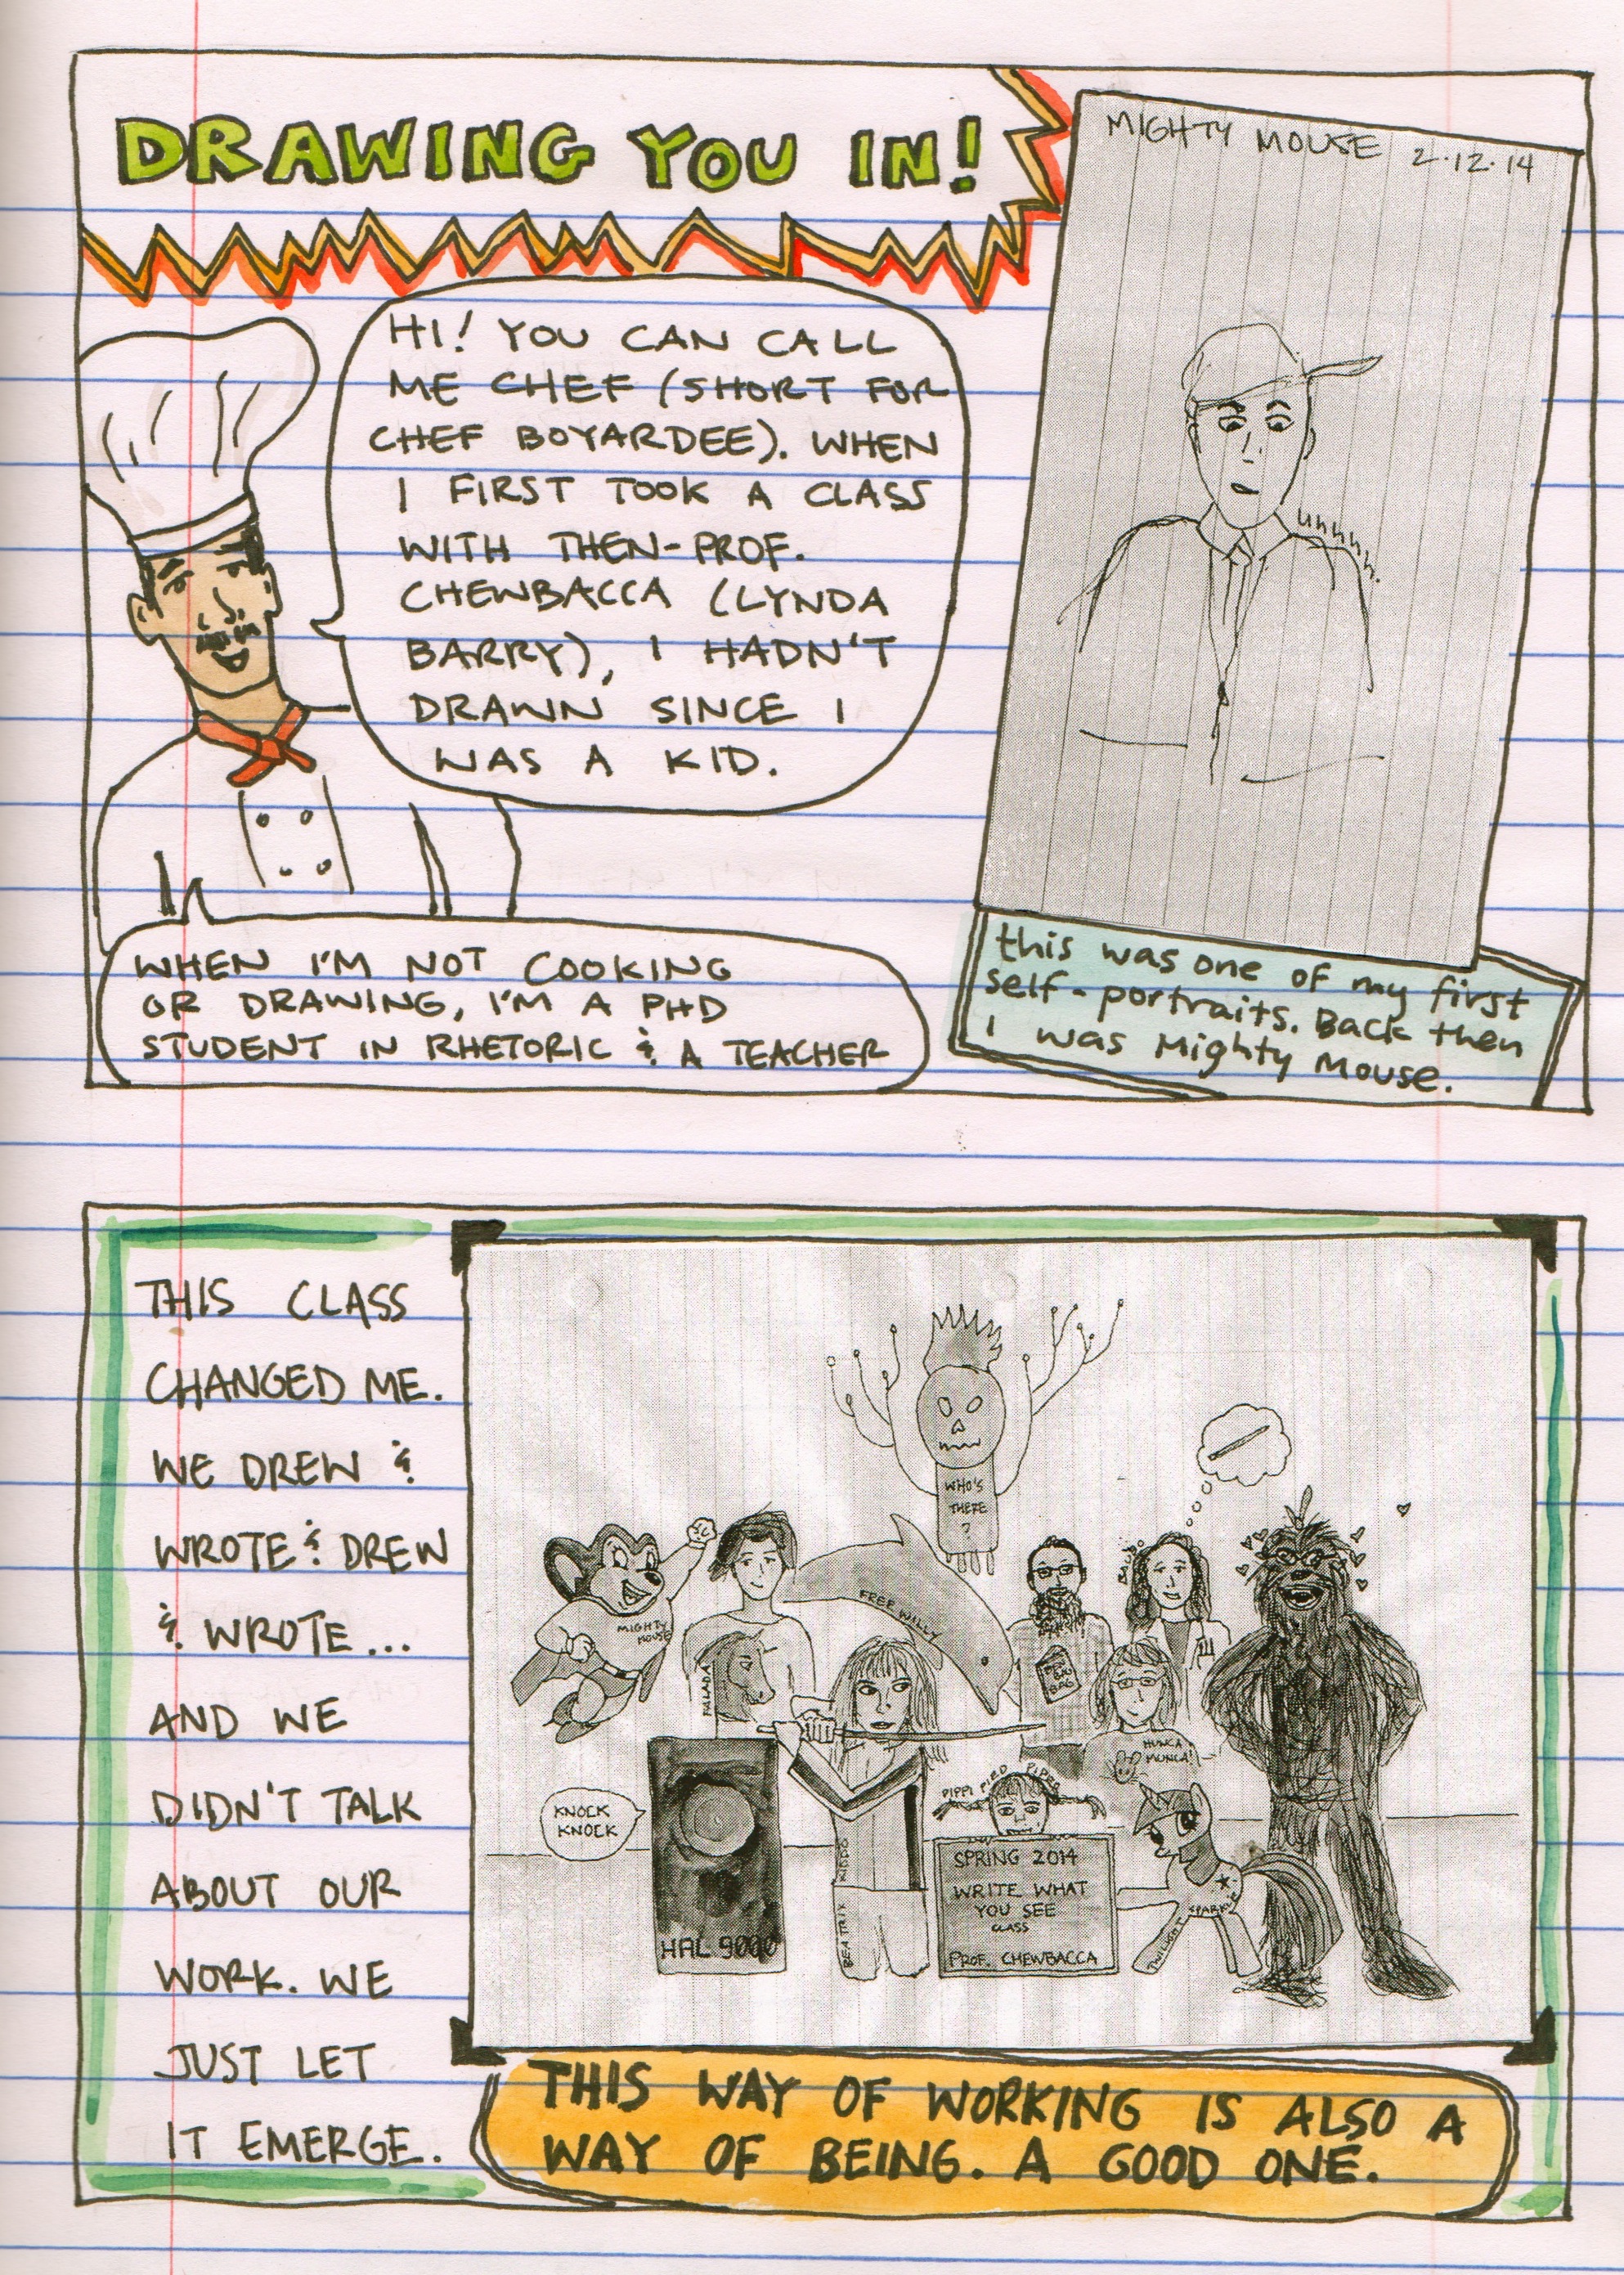 DRAWING YOU IN!
HI! YOU CAN CALL
ME CHEF (SHORT FOR
CHEF BOYARDEE). WHEN
I FIRST TOOK A CLASS
WITH THEN-PROF.
CHEWBACCA (LYNDA
BARRY), I HADN'T
DRAWN SINCE I
WAS A KID.
WHEN I'M NOT COOKING
OR DRAWING, I'M A PHD
STUDENT IN RHETORIC & A TEACHER
MIGHTY MOUSE 2.12.14
uhhhh.
this was one of my first
self-portraits. Back then
I was Mighty Mouse.
THIS CLASS
CHANGED ME.
WE DREW &
WROTE & DREW
& WROTE...
AND WE
DIDN'T TALK
ABOUT OUR
WORK. WE
JUST LET
IT EMERGE.
WHO'S
THERE
?
MIGHTY
MOUSE
FREE WILLY
BAG
HUNCA
MUNCA!
KNOCK
KNOCK
HAL 9000
BEATRIX KIDDO
PIPPI
SPRING 2014
WRITE WHAT
YOU SEE
CLASS
PROF. CHEWBACCA
TWILIGHT SPARKLE
THIS WAY OF WORKING IS ALSO A
WAY OF BEING. A GOOD ONE.